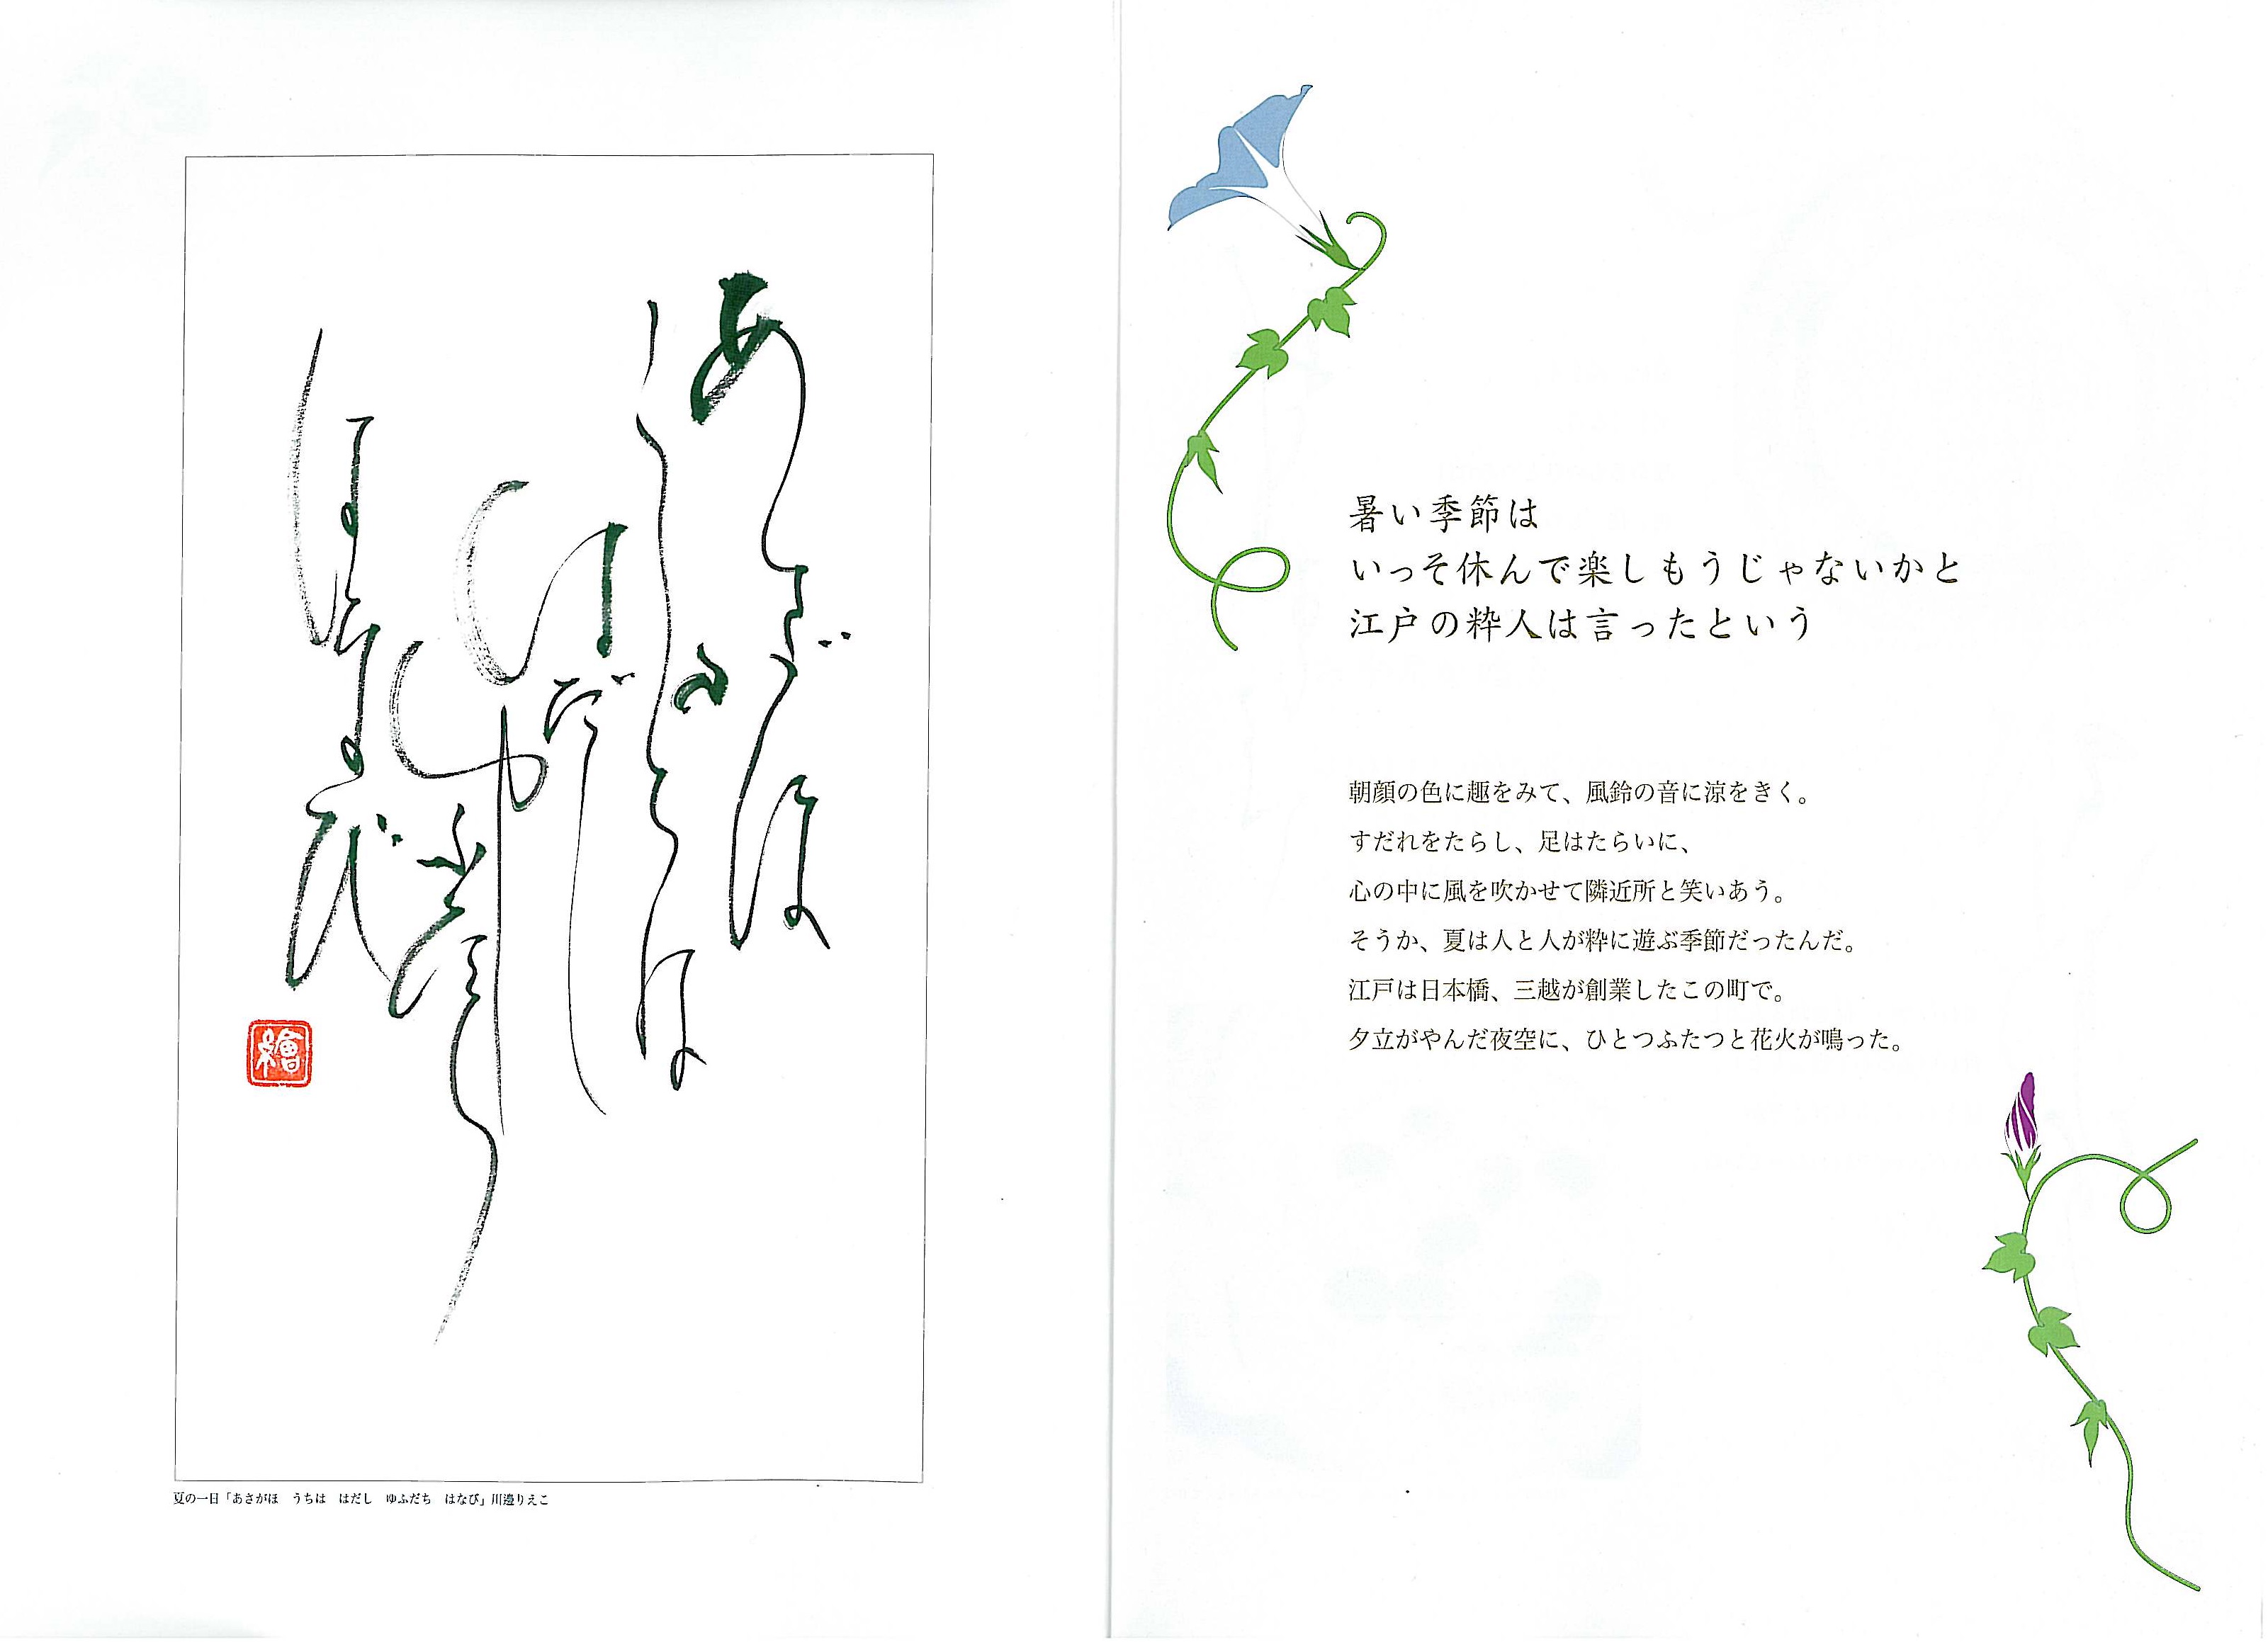 あさがほ
うちは
はだし
ゆふだち
はなび
繪
夏の一日「あさがほ　うちは　はだし　ゆふだち　はなび」川邉りえこ
暑い季節は
いっそ休んで楽しもうじゃないかと
江戸の粋人は言ったという
朝顔の色に趣をみて、風鈴の音に涼をきく。
すだれをたらし、足はたらいに、
心の中に風を吹かせて隣近所と笑いあう。
そうか、夏は人と人が粋に遊ぶ季節だったんだ。
江戸は日本橋、三越が創業したこの町で。
夕立がやんだ夜空に、ひとつふたつと花火が鳴った。